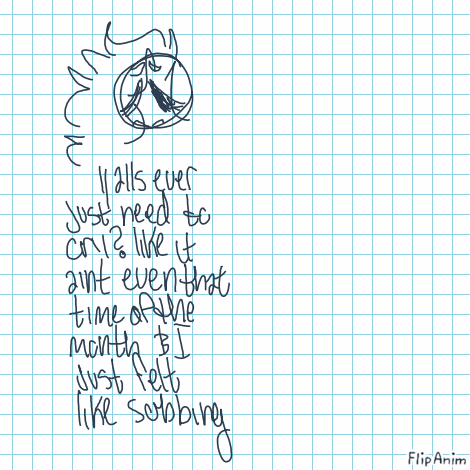 Yalls ever
just need to
cry? like it
aint even that
time of the
month & I
just felt
like sobbing
FlipAnim